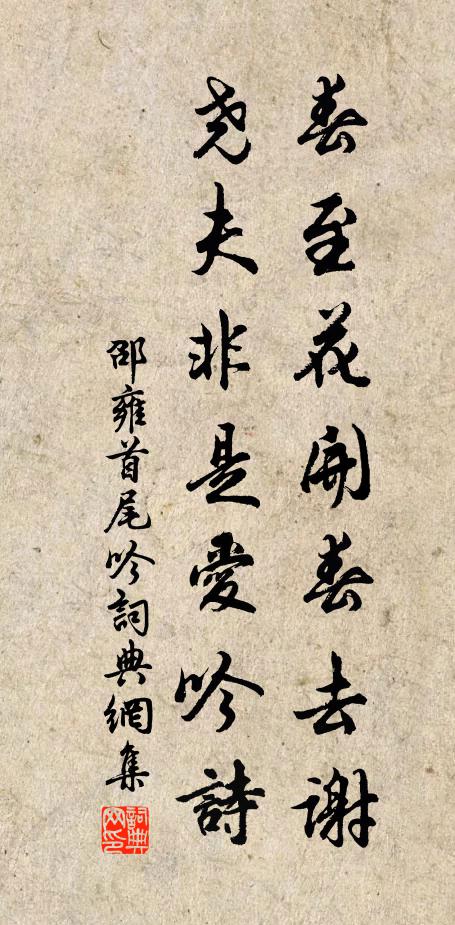 春至花開春去謝
尧夫非是愛吟詩
邵雍首尾吟詞典網集
詞典网印